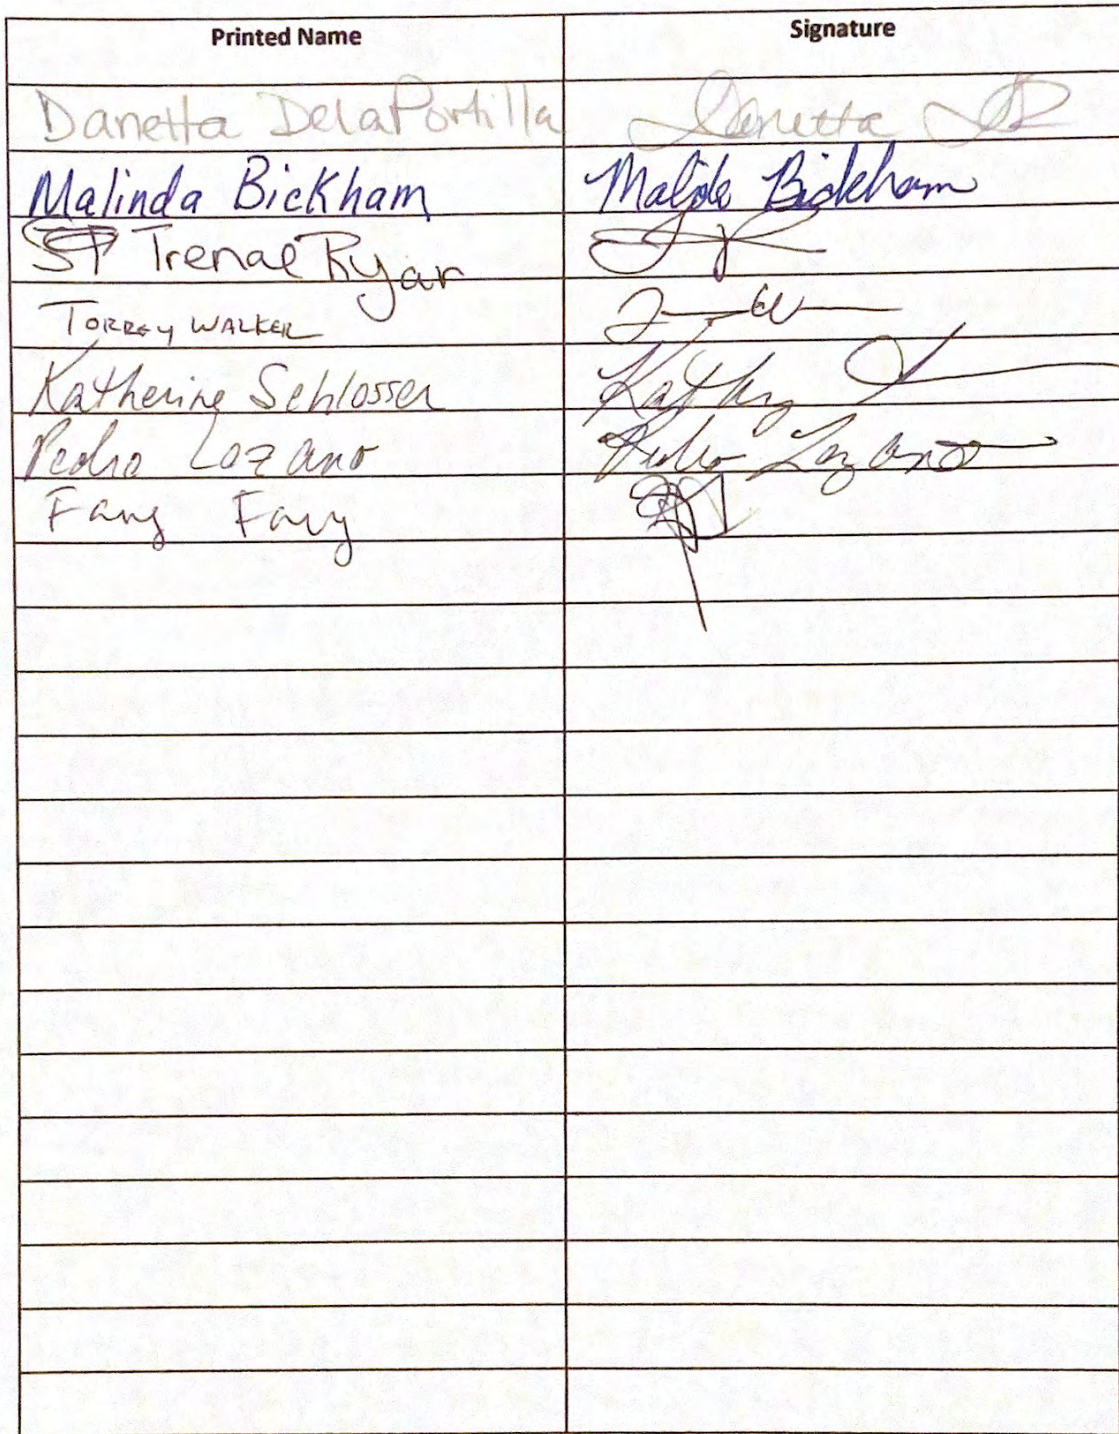 Printed Name Signature
Danetta DelaPortilla Danetta
Malinda Bickham Malinda Bickham
Trenae Ryan
TORREY WALKER
Katherine Schlosser Kathy
Pedro Lozano Pedro Lozano
Fang Fang